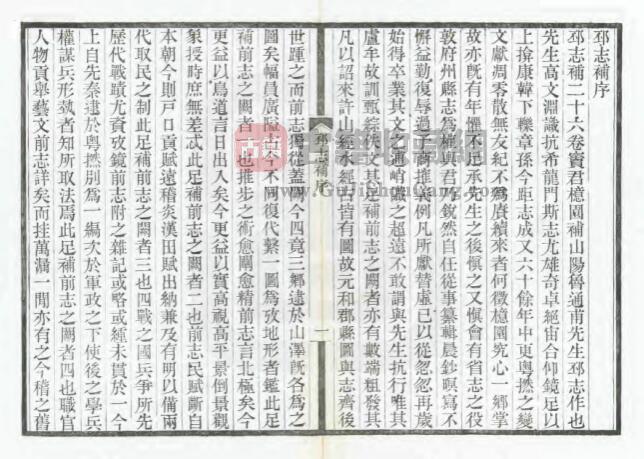 邳志補序
邳志補二十六卷竇君檍園補山陽魯通甫先生邳志作也
先生高文淵識抗希龍門斯志尤雄奇卓絕宙合仰鏡足以
上揜康韓下轢章孫今距志成又六十餘年中更粵撚之變
文獻凋零散無友紀不爲賡續來者何徵檍園究心一鄉掌
故亦旣有年懼不足承先生之後愼之又愼會有省志之役
敦府州縣志爲權輿君乃欿然自任從事纂輯晨鈔暝寫不
懈益勤復辱過 商搉義例凡所獻替虛己以從怱怱再歲
始得卒業其文之通峭識之超遠不敢謂與先生抗行唯其
盧牟故訓甄綜佚文其足補前志之闕者亦有數端粗發其
凡以詔來許山經水經古皆有圖故元和郡縣圖與志齊後
世踵之而前志獨從蓋闕今四竟三鄉逮於山澤旣各爲之
圖矣幅員廣隘古今不同復代繫一圖爲攷地形者鑑此足
補前志之闕者一也推步之術愈闡愈精前志言北極矣今
更益以鳥道言日出入矣今更益以實高視高平景倒景觀
象授時庶無差忒此足補前志之闕者二也前志民賦斷自
本朝今則戶口貢賦遠稽炎漢田賦出納兼及有明以備兩
代取民之制此足補前志之闕者三也四戰之國兵爭所先
歷代戰蹟尤資攷鏡前志附之雜記或略或經未貫於一今
上自先秦逮於粵撚別爲一編次於軍政之下使後之學兵
權謀兵形埶者知所取法焉此足補前志之闕者四也職官
人物貢舉藝文前志詳矣而挂萬漏一閒亦有之今稽之舊
邳志補序
一
古籍
GujiShuGuan.Com